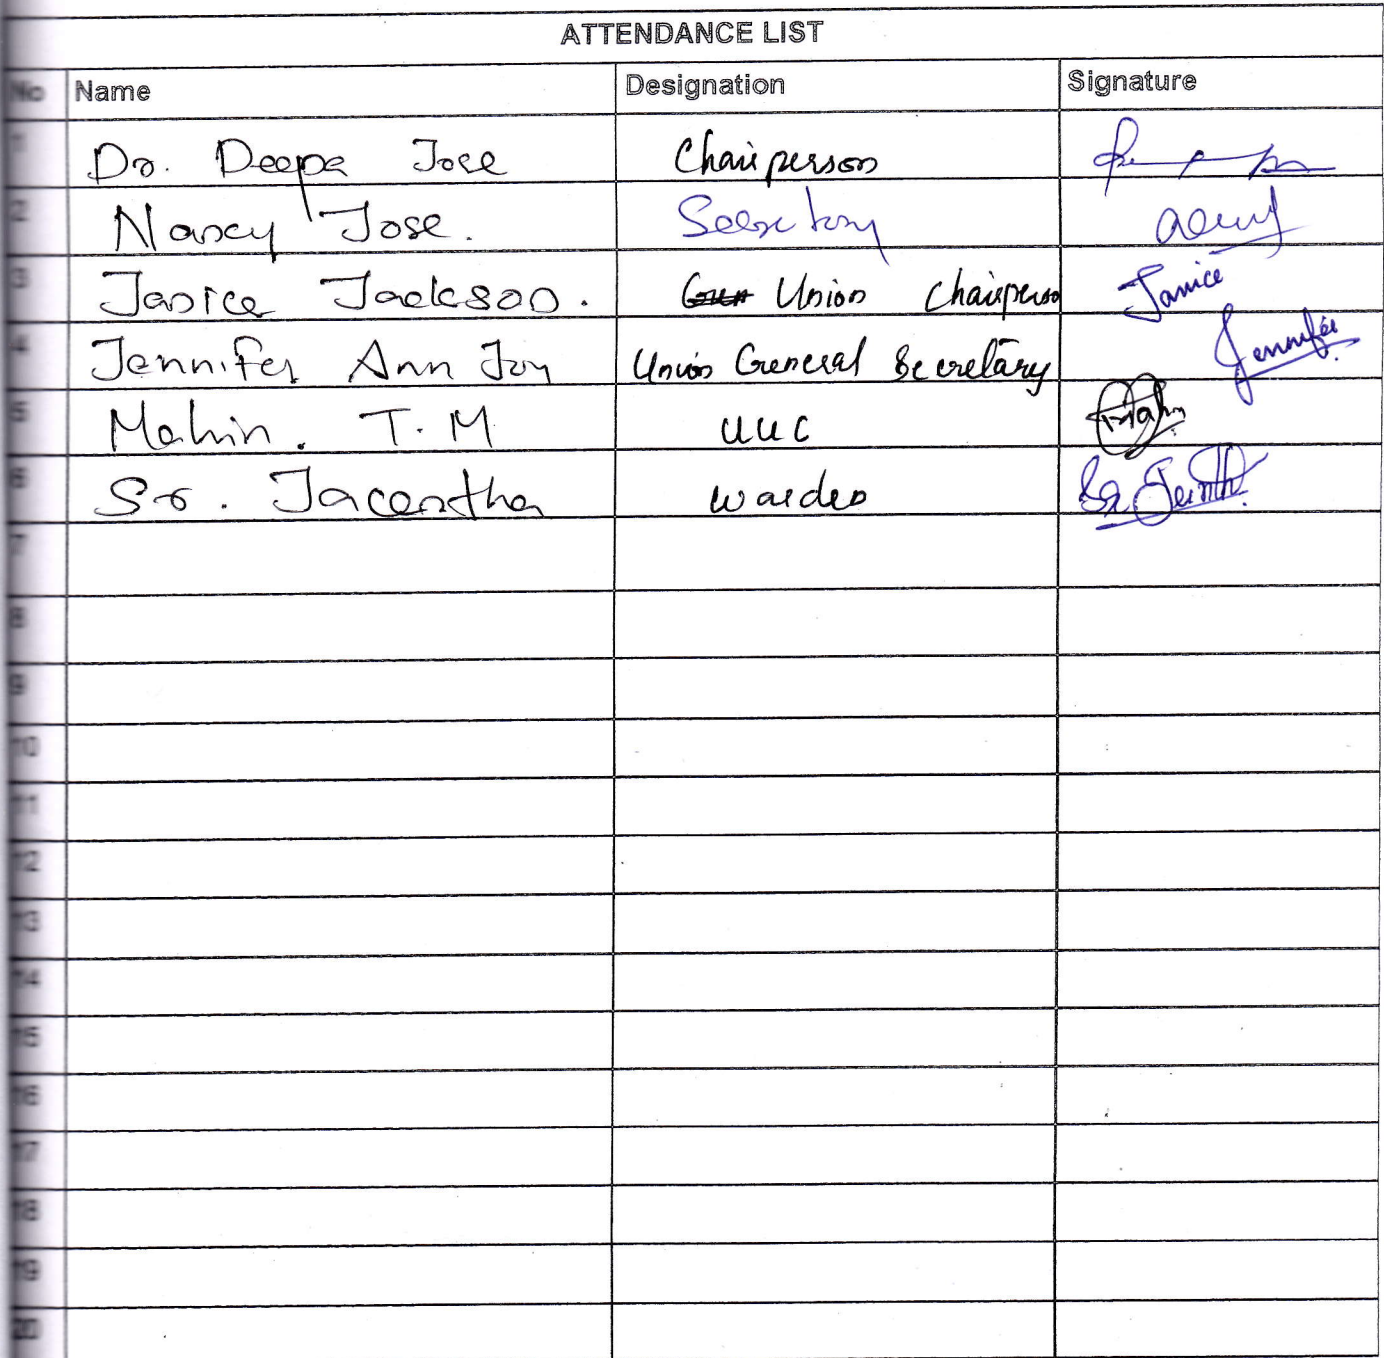 ATTENDANCE LIST
No Name Designation Signature
1 Dr. Deepa Jose Chairperson
2 Nancy Jose. Secretary
3 Janice Jackson. Union Chairperson Janice
4 Jennifer Ann Joy Union General Secretary Jennifer
5 Mahin. T.M UUC
6 Sr. Jacentha Warden Sr.
7
8
9
10
11
12
13
14
15
16
17
18
19
20